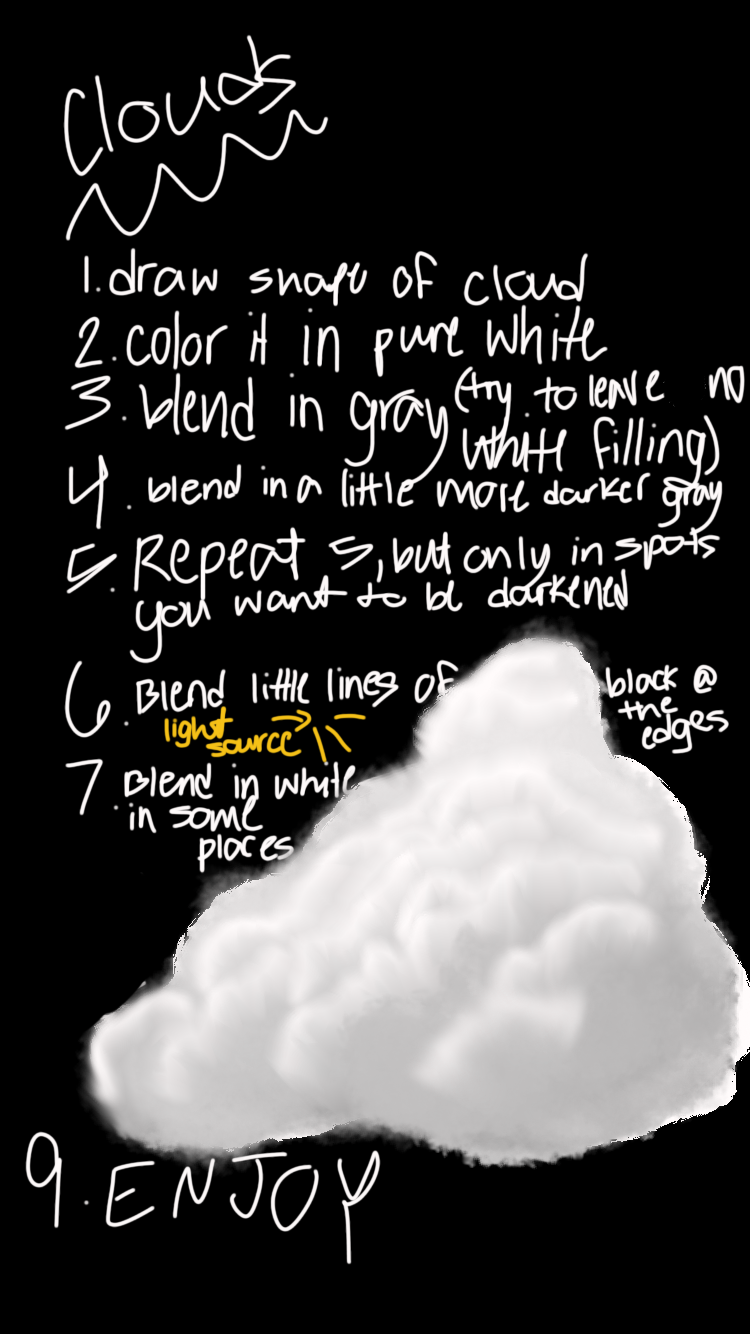 Clouds
1. draw shape of cloud
2. color it in pure white
3. blend in gray (try to leave no
white filling)
4. blend in a little more darker gray
5. Repeat 5, but only in spots
you want to be darkened
6. Blend little lines of black @
the
edges
light
source
7 Blend in white
in some
places
9. ENJOY